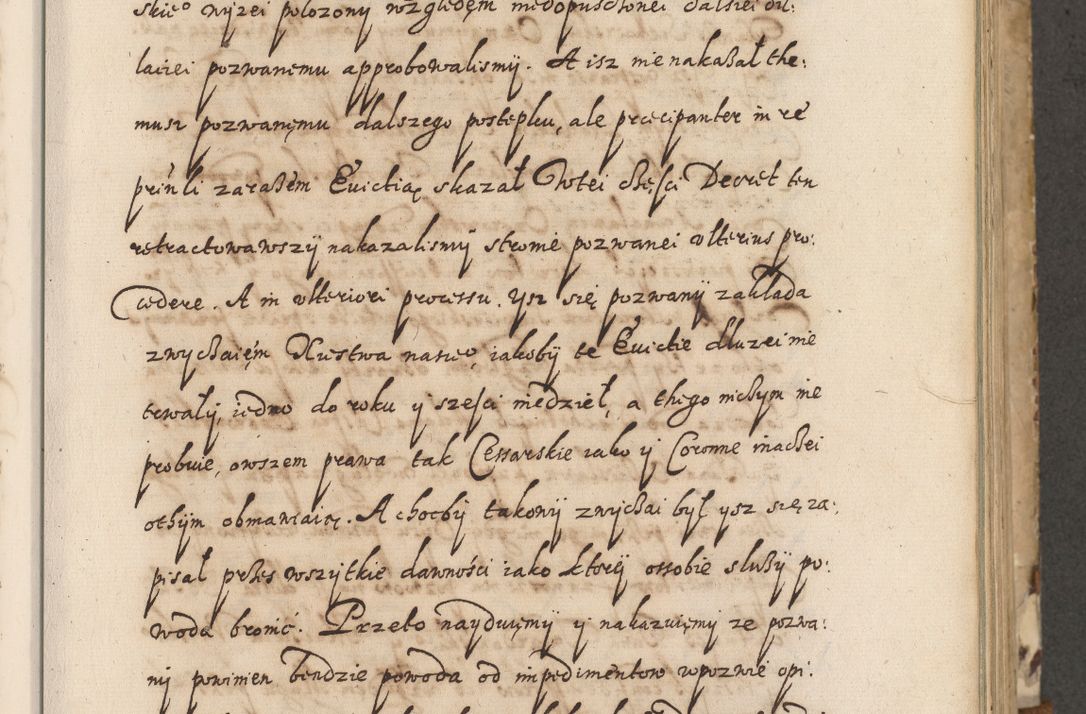 skieº wyzei polozony względęm niedopusczonei dalsiei dil:
laciei pozwanemu approbowalismÿ. A isz nie nakazał the:
musz pozwanęmu dalszego postępku, ale prcecipanter in re
prin̄li zarazem Euictią skazał Wtei częsci Decret ten
retractowawszÿ nakazalismÿ stronie pozwanei vlterius pro:
cedere. A in vlteriori processu. ysz się pozwanÿ zaklada
zwyczaięm Xięstwa nasieº, iakobÿ te Euictie dluzei nie
trwałÿ, iedno do roku y szesci niedzieł, a thego niczym nie
probuie, owszem prawa tak Cessarskie iako ÿ Coronne inaczei
othÿm obmawiaią. A chocbÿ takowÿ zwyczai był ysz się za:
pisał przes wszÿtkie dawności iako ktorÿ ossobie sluzÿ po:
woda bronić. Przeto naÿduięmÿ ÿ nakazuięmÿ ze pozwa:
nÿ powinien bendzie powoda od impedimentow wpozwie opi: